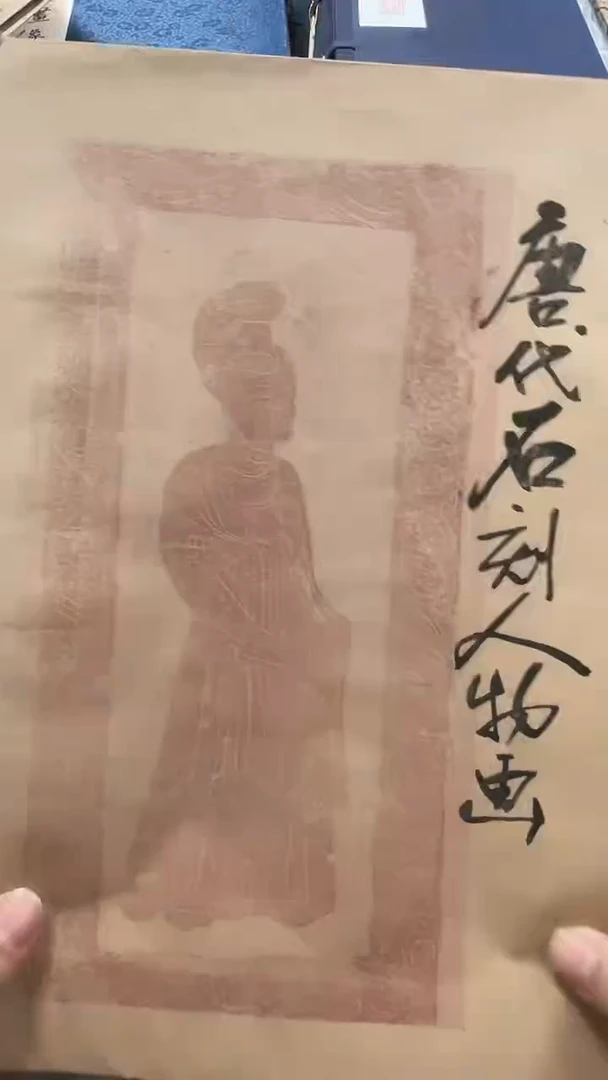 唐代石刻人物画